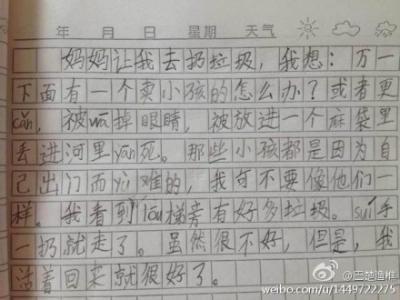 年 月 日 星期 天气
妈妈让我去扔垃圾,我想:万一
下面有一个卖小孩的怎么办?或者更
cǎn,被wā掉眼睛,被放进一个麻袋里
丢进河里yān死。那些小孩都是因为自
己出门而yù难的,我可不要像他们一
样。我看到lóu梯旁有好多垃圾。suí手
一扔就走了。虽然很不好,但是,我
活着回来就很好了。
@巴楚渔惟
weibo.com/u/1449722275